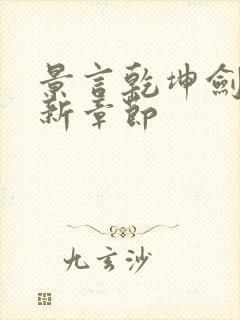 景言乾坤劍
新章節
九玄沙